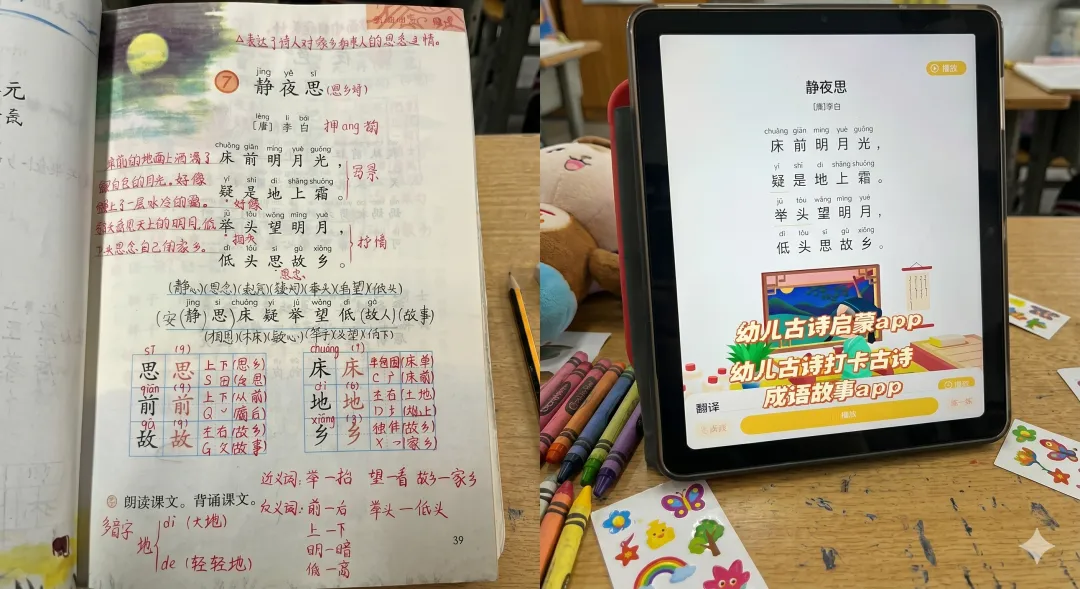 △表达了诗人对家乡和亲人的思念之情。
jìng yè sī
7 静夜思(思乡诗)
táng lǐ bái
[唐]李白 押ang韵
chuáng qián míng yuè guāng
床前明月光，
床前的地面上洒满了
yí shì dì shàng shuāng
银白色的月光,好像
疑是地上霜。
写景
铺上了一层冰冷的霜。
好像
jǔ tóu wàng míng yuè
举头望明月，
抬头
低头思念自己的家乡。
dī tóu sī gù xiāng
低头思故乡。
抒情
思念
(静心)(思念)
(举头)(看望)(低头)
jìng sī chuáng yí jǔ wàng dī gù
(安(静)思)床疑举望低(故人)(故事)
(相思)(木床)
sī (9)
思 思 上下(思乡)
S 田(反思)
qián (9)
前 前 上下(从前)
gù (9)
故 故 左右(故乡)
G 攵(故事)
chuáng (7)
床 床 半包围(床单)
C 广(床前)
dì (6)
地 地 左右(土地)
D 土(地上)
xiāng (3)
乡 乡 独体(故乡)
(家乡)
近义词:举—抬 望—看 故乡—家乡
朗读课文。背诵课文。
反义词:前—后 举头—低头
上—下
明—暗
低—高
多音字
地
dì (大地)
de (轻轻地)
39
播放
静夜思
[唐]李白
chuáng qián míng yuè guāng
床前明月光，
yí shì dì shàng shuāng
疑是地上霜。
jǔ tóu wàng míng yuè
举头望明月，
dī tóu sī gù xiāng
低头思故乡。
幼儿古诗启蒙app
幼儿古诗打卡古诗
成语故事app
翻译
播放
播放